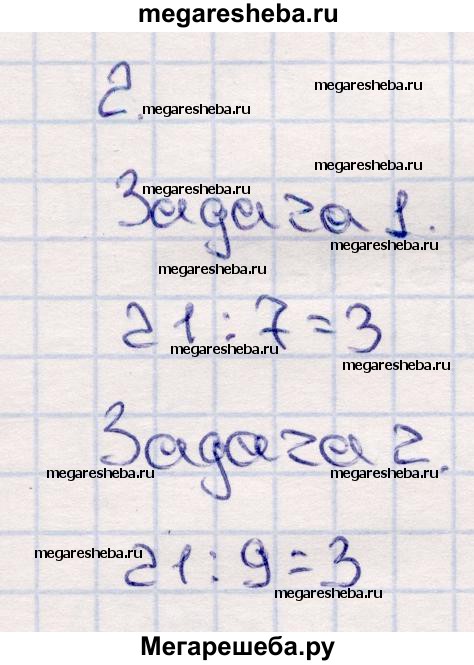 megaresheba.ru
megaresheba.ru
2.
megaresheba.ru
megaresheba.ru
megaresheba.ru
Задача 1.
megaresheba.ru
megaresheba.ru
21 : 7 = 3
megaresheba.ru
megaresheba.ru
Задача 2.
megaresheba.ru
megaresheba.ru
21 : 9 = 3
megaresheba.ru
megaresheba.ru
Мегарешеба.ру